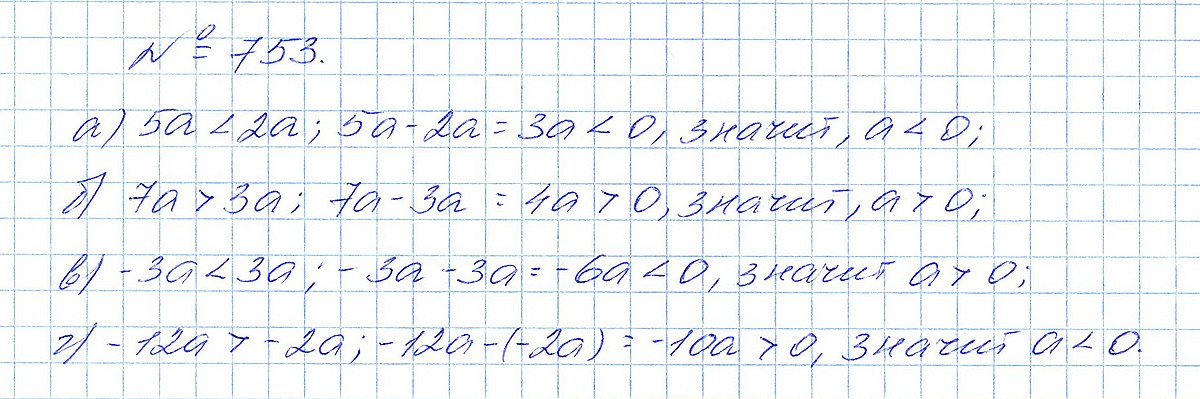 № 753.
а) 5a < 2a; 5a - 2a = 3a < 0, значит, a < 0;
б) 7a > 3a; 7a - 3a = 4a > 0, значит, a > 0;
в) -3a < 3a; -3a - 3a = -6a < 0, значит a > 0;
г) -12a > -2a; -12a - (-2a) = -10a > 0, значит a < 0.